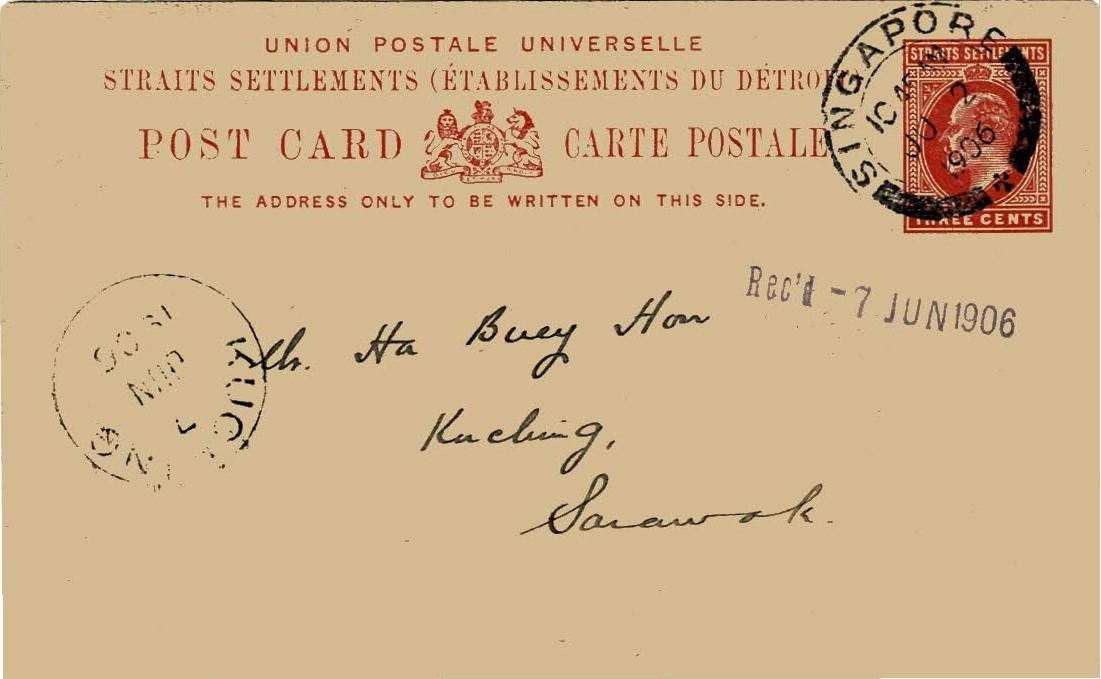 UNION POSTALE UNIVERSELLE
STRAITS SETTLEMENTS (ÉTABLISSEMENTS DU DÉTRO
POST CARD CARTE POSTALE
THE ADDRESS ONLY TO BE WRITTEN ON THIS SIDE.
STRAITS SETTLEMENTS
THREE CENTS
SINGAPORE
10 AM
JU 2
1906
Rec'd - 7 JUN 1906
Ha Buey Hon
Kuching,
Sarawak.
KUCHING
7
JUN
1906